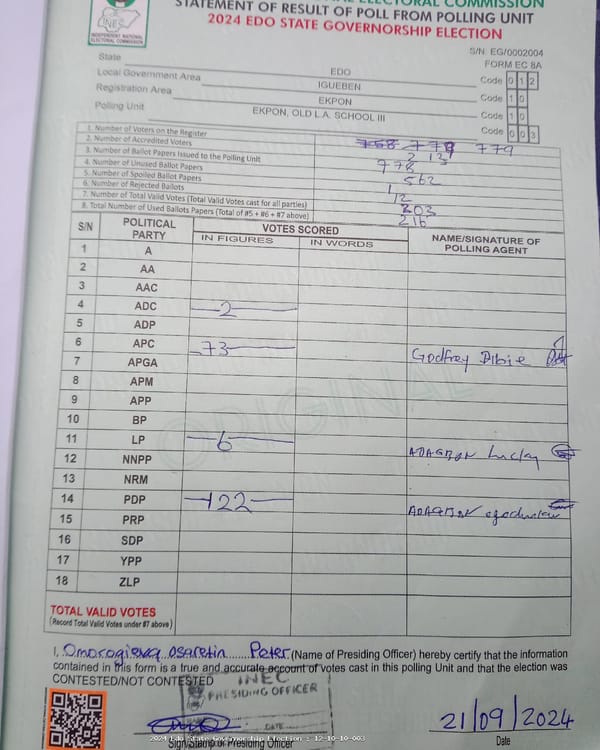 INDEPENDENT NATIONAL ELECTORAL COMMISSION
STATEMENT OF RESULT OF POLL FROM POLLING UNIT
2024 EDO STATE GOVERNORSHIP ELECTION
S/N EG/0002004
FORM EC 8A
State EDO Code 0 1 2
Local Government Area IGUEBEN Code 1 0
Registration Area EKPON Code 1 0
Polling Unit EKPON, OLD L.A. SCHOOL III Code 0 0 3
1. Number of Voters on the Register 779
2. Number of Accredited Voters
3. Number of Ballot Papers Issued to the Polling Unit 778
4. Number of Unused Ballot Papers 562
5. Number of Spoiled Ballot Papers 1
6. Number of Rejected Ballots 12
7. Number of Total Valid Votes (Total Valid Votes cast for all parties) 203
8. Total Number of Used Ballots Papers (Total of #5 + #6 + #7 above) 216
S/N POLITICAL PARTY VOTES SCORED IN FIGURES IN WORDS NAME/SIGNATURE OF POLLING AGENT
1 A
2 AA
3 AAC
4 ADC 2
5 ADP
6 APC 73 Godfrey Dibie
7 APGA
8 APM
9 APP
10 BP
11 LP 6 ADAGBON Lucky
12 NNPP
13 NRM
14 PDP 122 ADAGBON
15 PRP
16 SDP
17 YPP
18 ZLP
TOTAL VALID VOTES
(Record Total Valid Votes under #7 above)
I, Omoregieva Osaretin Peter (Name of Presiding Officer) hereby certify that the information
contained in this form is a true and accurate account of votes cast in this polling Unit and that the election was
CONTESTED/NOT CONTESTED
INEC
PRESIDING OFFICER
DATE
21/09/2024
2024 Edo State Governorship Election : 12-10-10-003
Sign/Stamp of Presiding Officer Date
ORIGINAL